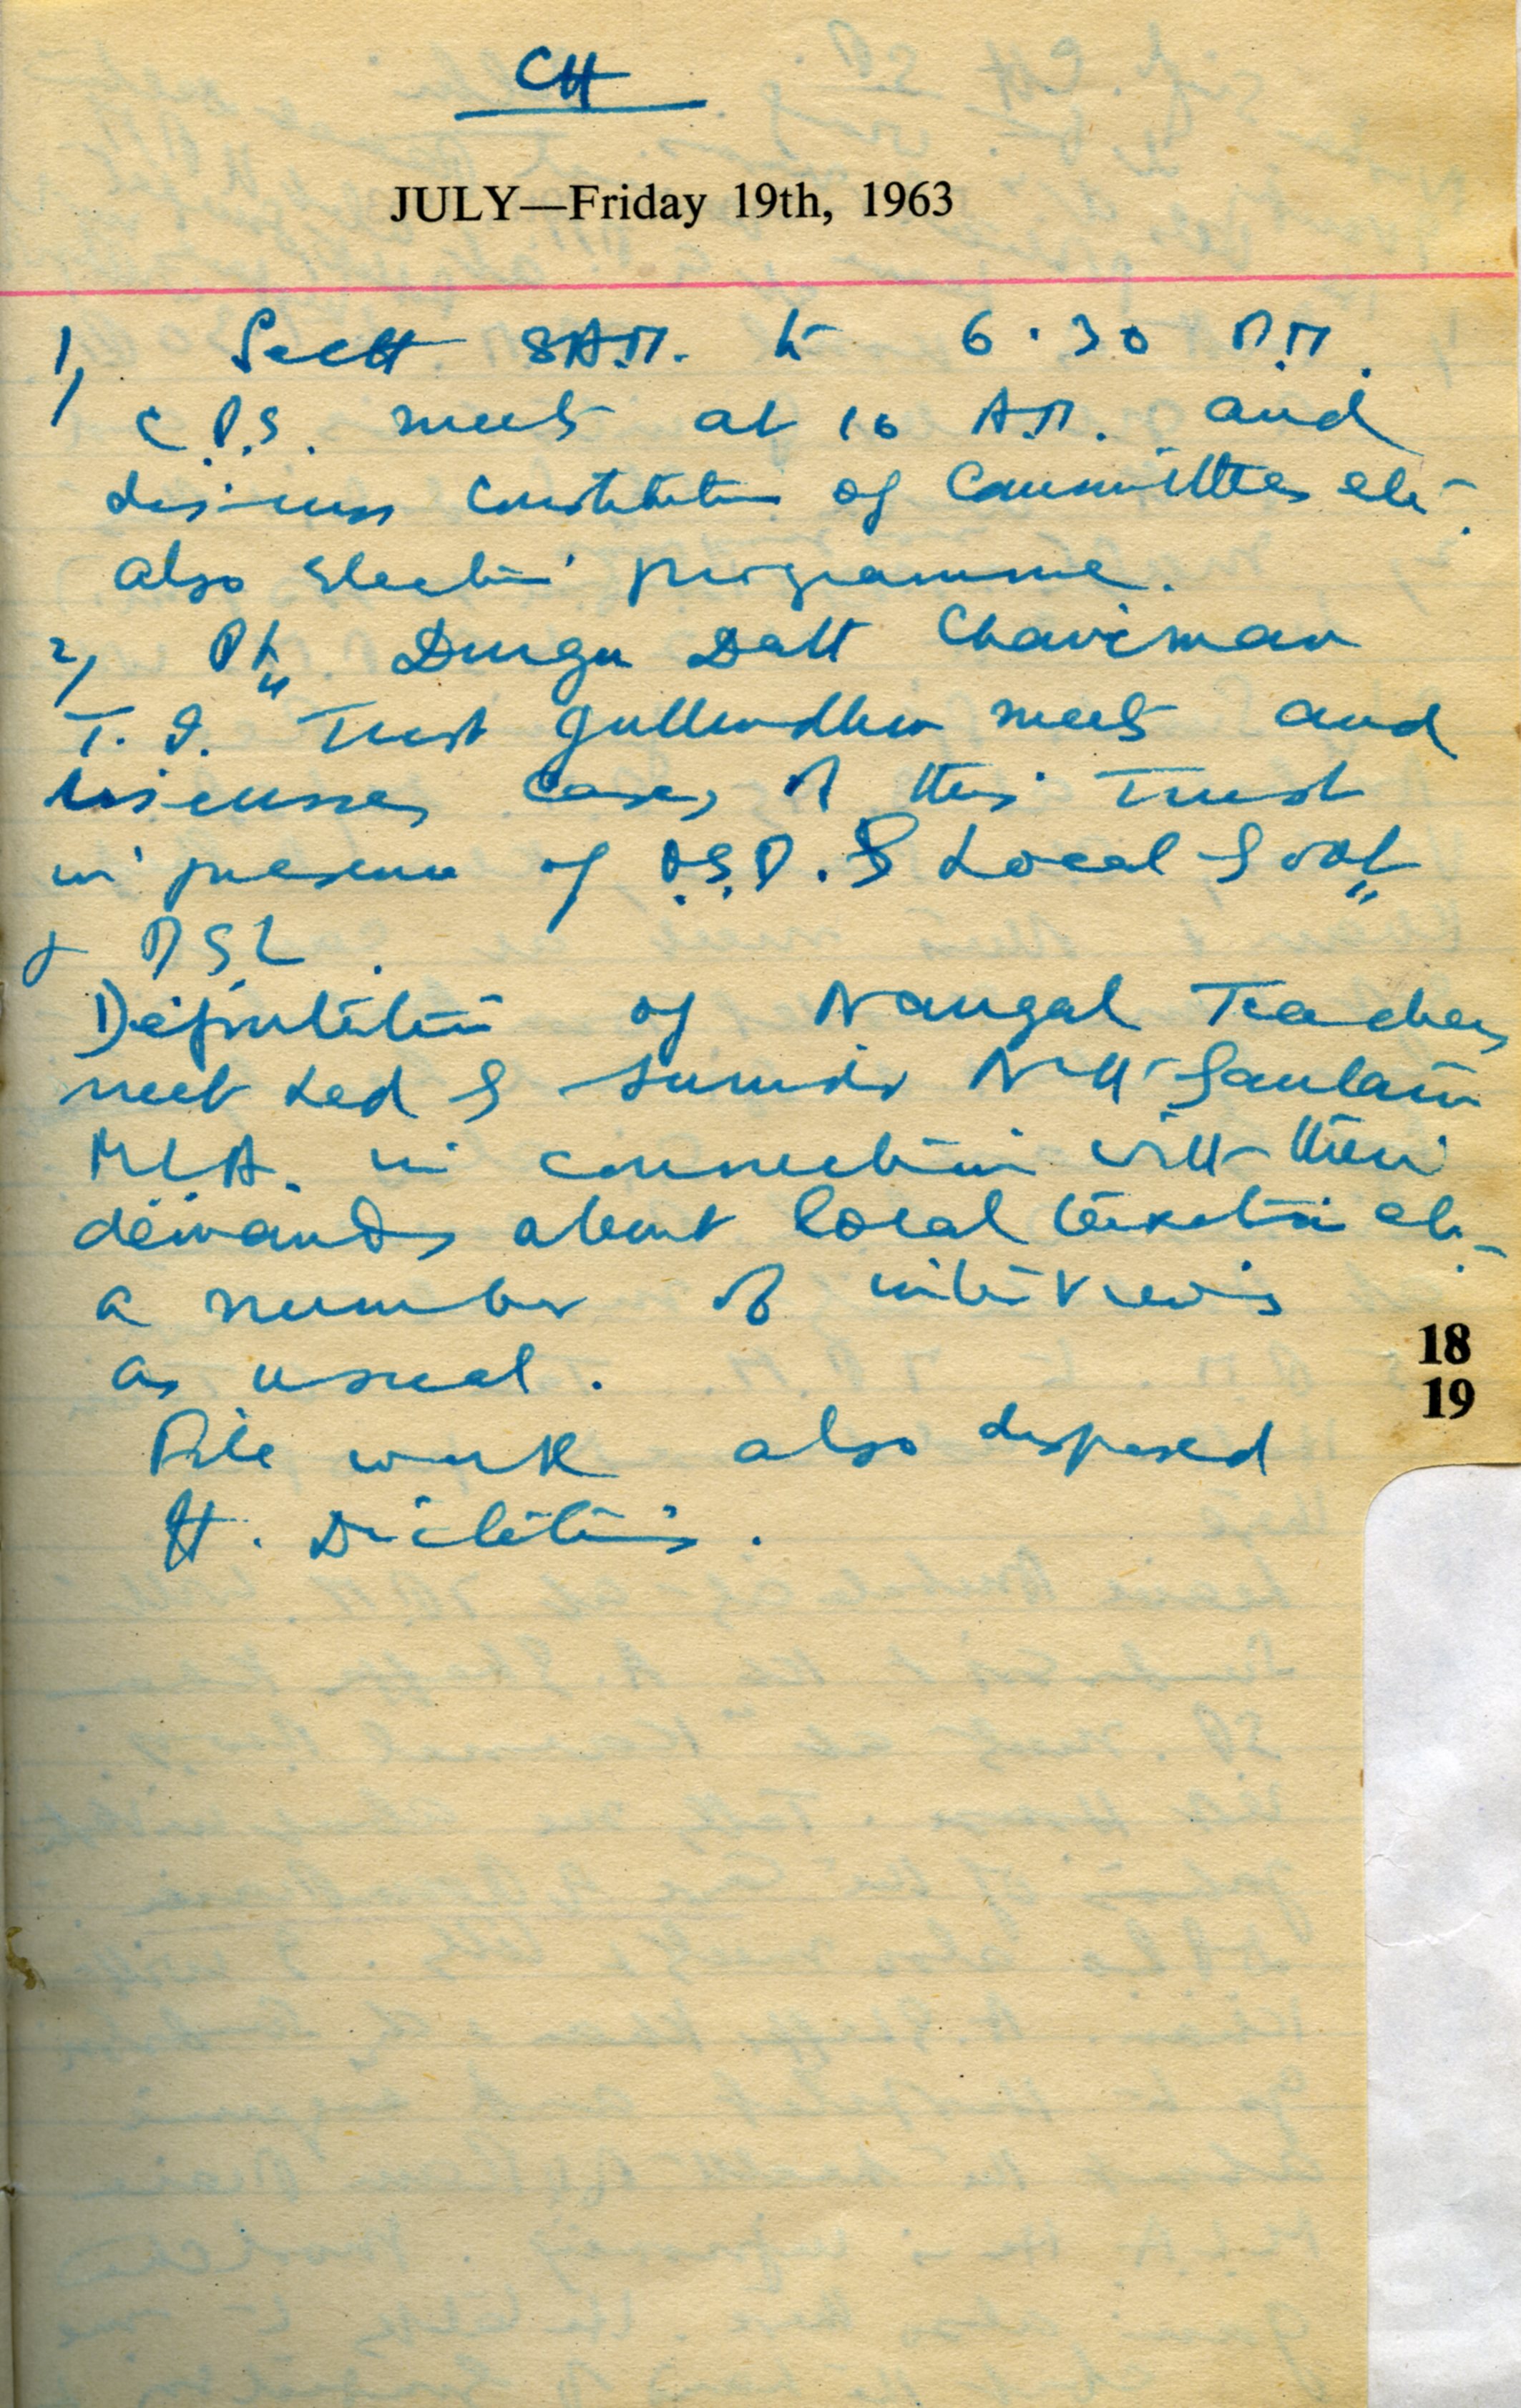 CH
JULY—Friday 19th, 1963
1) Sectt 8 A.M. to 6.30 P.M.
C.P.S. meets at 10 A.M. and
discuss constitution of Committees etc.
also election programme.
2) Pt. Durga Datt Chairman
T. I. Trust Jullundhur meets and
discusses cases of this Trust
in presence of O.S.D. Local Govt
& DSL.
Deputation of Nangal Teachers
meet led by Surinder Nath Gautam
M.L.A. in connection with their
demands about local taxation etc.
a number of interviews
as usual.
File work also disposed
H. Dictations.
18
19